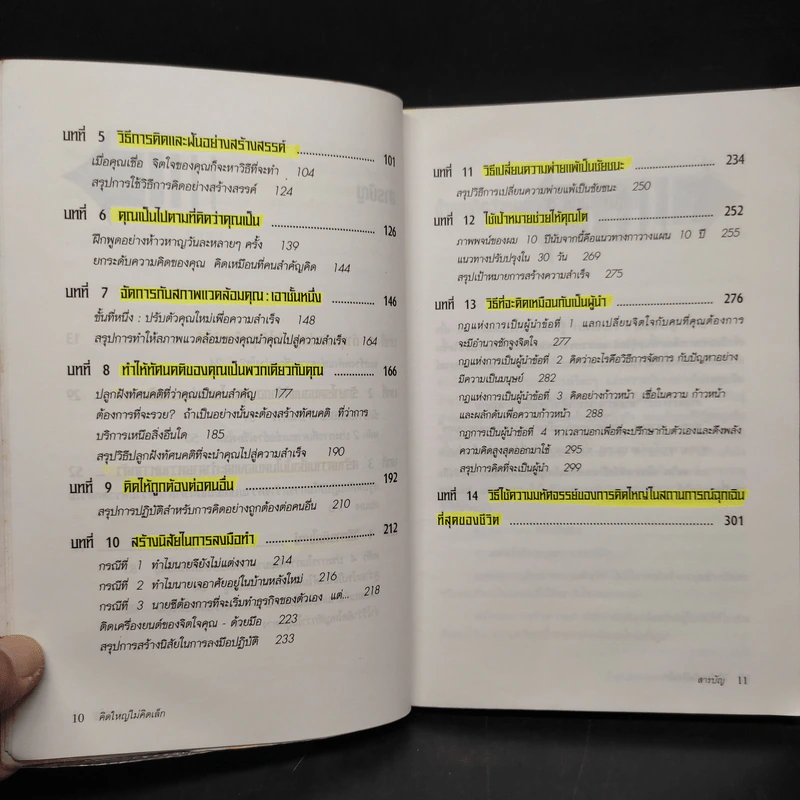 บทที่ 5 วิธีการคิดและฝันอย่างสร้างสรรค์ 101
เมื่อคุณเชื่อ จิตใจของคุณก็จะหาวิธีที่จะทำ 104
สรุปการใช้วิธีการคิดอย่างสร้างสรรค์ 124
บทที่ 6 คุณเป็นไปตามที่คิดว่าคุณเป็น 126
ฝึกพูดอย่างห้าวหาญวันละหลายๆ ครั้ง 139
ยกระดับความคิดของคุณ คิดเหมือนที่คนสำคัญคิด 144
บทที่ 7 จัดการกับสภาพแวดล้อมคุณ : เอาชั้นหนึ่ง 146
ชั้นที่หนึ่ง : ปรับตัวคุณใหม่เพื่อความสำเร็จ 148
สรุปการทำให้สภาพแวดล้อมของคุณนำคุณไปสู่ความสำเร็จ 164
บทที่ 8 ทำให้ทัศนคติของคุณเป็นพวกเดียวกับคุณ 166
ปลูกฝังทัศนคติที่ว่าคุณเป็นคนสำคัญ 177
ต้องการที่จะรวย? ถ้าเป็นอย่างนั้นจะต้องสร้างทัศนคติ ที่ว่าการ
บริการเหนือสิ่งอื่นใด 185
สรุปวิธีปลูกฝังทัศนคติที่จะนำคุณไปสู่ความสำเร็จ 190
บทที่ 9 คิดให้ถูกต้องต่อคนอื่น 192
สรุปการปฏิบัติสำหรับการคิดอย่างถูกต้องต่อคนอื่น 210
บทที่ 10 สร้างนิสัยในการลงมือทำ 212
กรณีที่ 1 ทำไมนายจียังไม่แต่งงาน 214
กรณีที่ 2 ทำไมนายเจอาศัยอยู่ในบ้านหลังใหม่ 216
กรณีที่ 3 นายซีต้องการที่จะเริ่มทำธุรกิจของตัวเอง แต่... 218
ติดเครื่องยนต์ของจิตใจคุณ - ด้วยมือ 223
สรุปการสร้างนิสัยในการลงมือปฏิบัติ 233
10 คิดใหญ่ไม่คิดเล็ก
บทที่ 11 วิธีเปลี่ยนความพ่ายแพ้เป็นชัยชนะ 234
สรุปวิธีการเปลี่ยนความพ่ายแพ้เป็นชัยชนะ 250
บทที่ 12 ใช้เป้าหมายช่วยให้คุณโต 252
ภาพพจน์ของผม 10 ปีนับจากนี้คือแนวทางกาวางแผน 10 ปี 255
แนวทางปรับปรุงใน 30 วัน 269
สรุปเป้าหมายการสร้างความสำเร็จ 275
บทที่ 13 วิธีที่จะคิดเหมือนกับเป็นผู้นำ 276
กฎแห่งการเป็นผู้นำข้อที่ 1 แลกเปลี่ยนจิตใจกับคนที่คุณต้องการ
จะมีอำนาจชักจูงจิตใจ 277
กฎแห่งการเป็นผู้นำข้อที่ 2 คิดว่าอะไรคือวิธีการจัดการ กับปัญหาอย่าง
มีความเป็นมนุษย์ 282
กฎแห่งการเป็นผู้นำข้อที่ 3 คิดอย่างก้าวหน้า เชื่อในความ ก้าวหน้า
และผลักดันเพื่อความก้าวหน้า 288
กฎการเป็นผู้นำข้อที่ 4 หาเวลานอกเพื่อที่จะปรึกษากับตัวเองและดึงพลัง
ความคิดสูงสุดออกมาใช้ 295
สรุปการคิดที่จะเป็นผู้นำ 299
บทที่ 14 วิธีใช้ความมหัศจรรย์ของการคิดใหญ่ในสถานการณ์ฉุกเฉิน
ที่สุดของชีวิต 301
สารบัญ 11